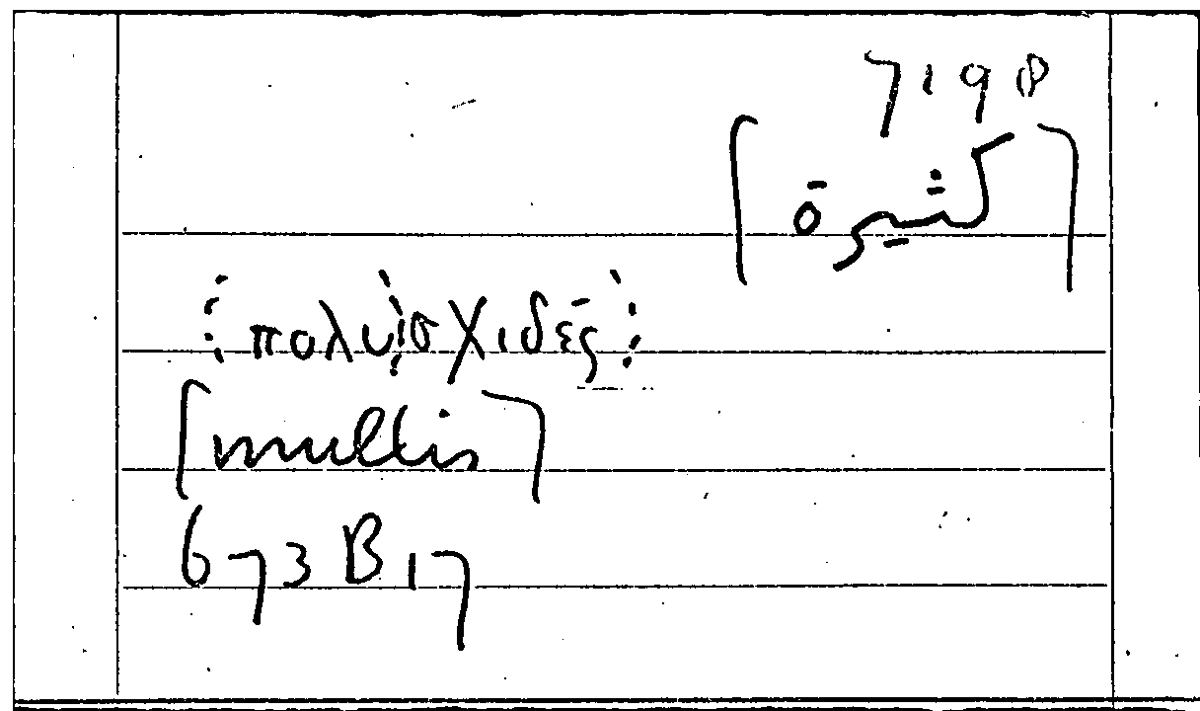 7198
⌈كثيرة⌉
πολυσχιδές
⌈multis⌉
673 B 17